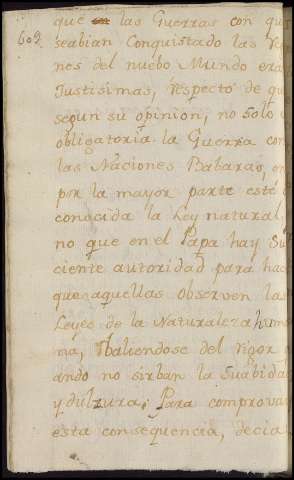 que las Guerras con que
609
seabian Conquistado las Re
nes del nuebo Mundo eran
Justisimas, respecto de qu
segun su opinion, no solo
obligatoria la Guerra con
las Naciones Babaras, en
por la mayor parte esté
conocida la Ley natural,
no que en el Papa hay Su
ciente autoridad para hac
que aquellas observen las
Leyes de la Naturaleza hum
ma, Valiendose del rigor
ando no sirban la Suabida
y dulzura; Para comprovar
esta consequencia, decia